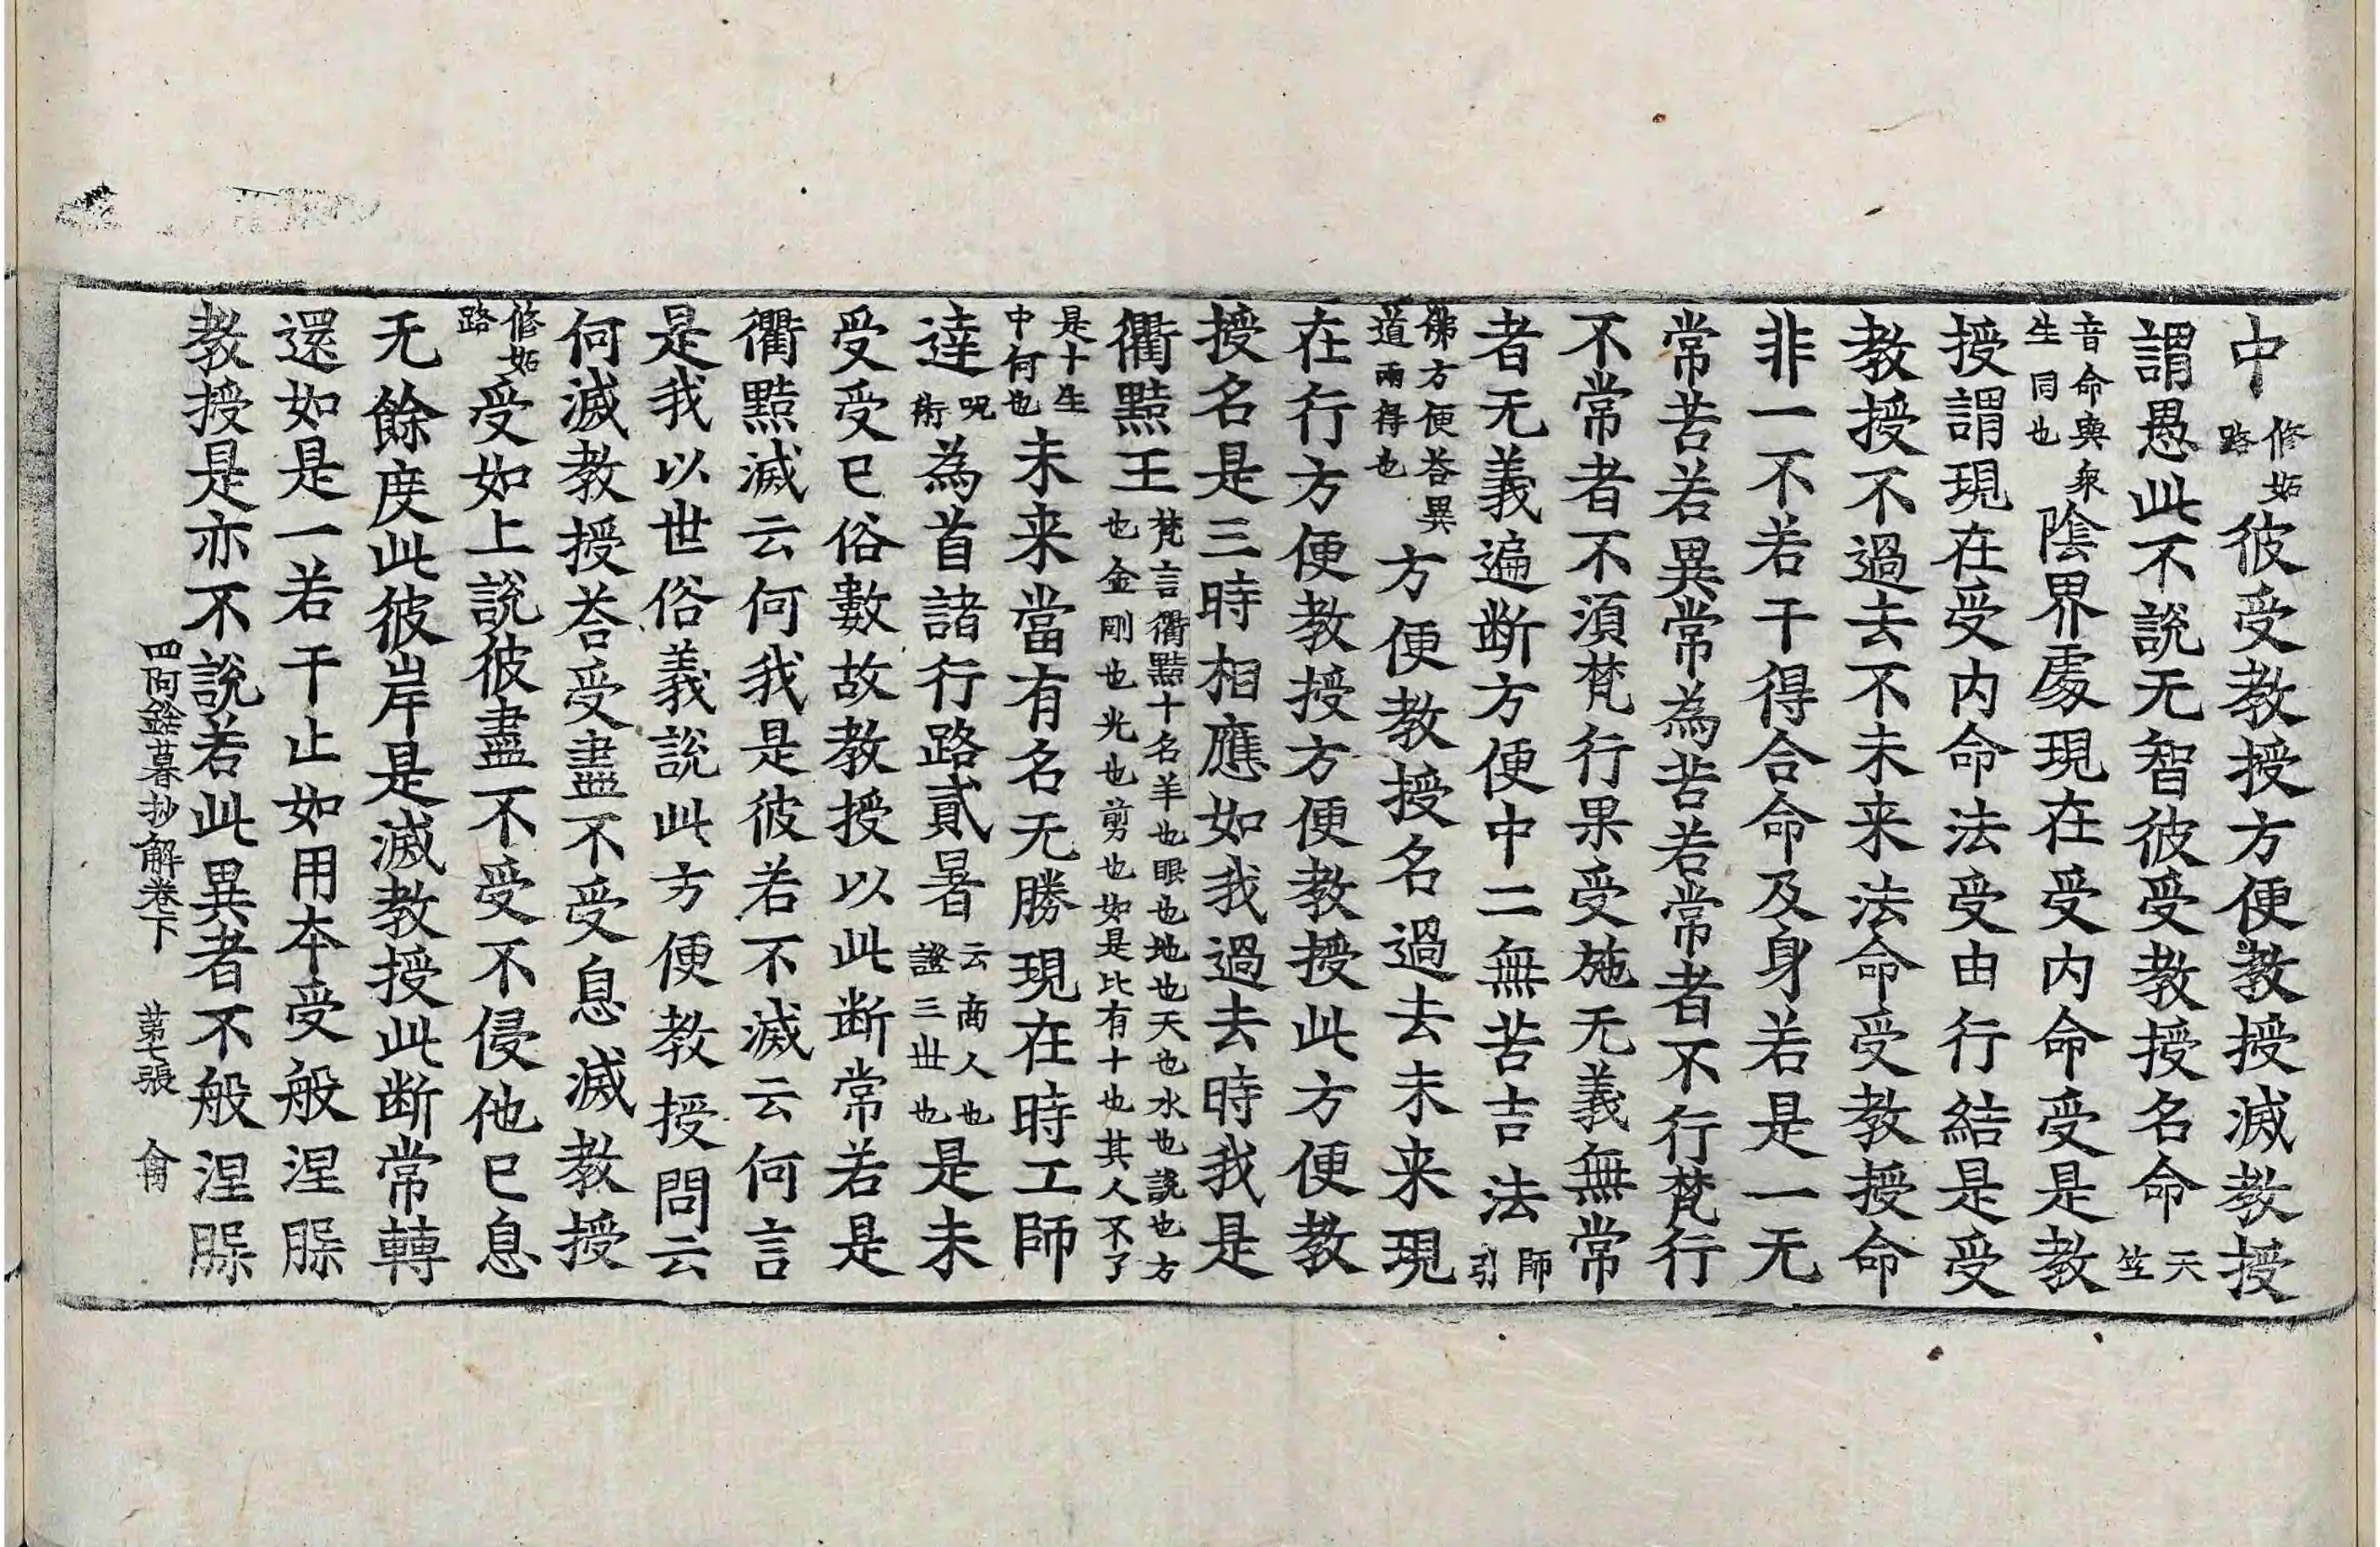 中修妬路彼受教授方便教授滅教授
謂愚此不說无智彼受教授名命天竺
音命與衆生同也陰界處現在受内命受是教
授謂現在受内命法受由行結是受
教授不過去不未来法命受教授命
非一不若干得合命及身若是一无
常苦若異常為苦若常者不行梵行
不常者不須梵行果受施无義無常
者无義遍断方便中二無苦吉法師引
佛方便荅異道兩得也方便教授名過去未来現
在行方便教授方便教授此方便教
授名是三時相應如我過去時我是
衢㸃王梵言衢㸃十名羊也眼也地也天也水也說也方也金剛也光也剪也如是比有十也其人不了
是十生中何也未来當有名无勝現在時工師
達呪術為首諸行路貳暑云商人也證三世也是未
受受已俗數故教授以此断常若是
衢㸃滅云何我是彼若不滅云何言
是我以世俗義說此方便教授問云
何滅教授荅受盡不受息滅教授
修妬路受如上說彼盡不受不侵他已息
无餘度此彼岸是滅教授此断常轉
還如是一若干止如用本受般涅脲
教授是亦不說若此異者不般涅脲
四阿鋡暮抄解卷下　第七張　龠